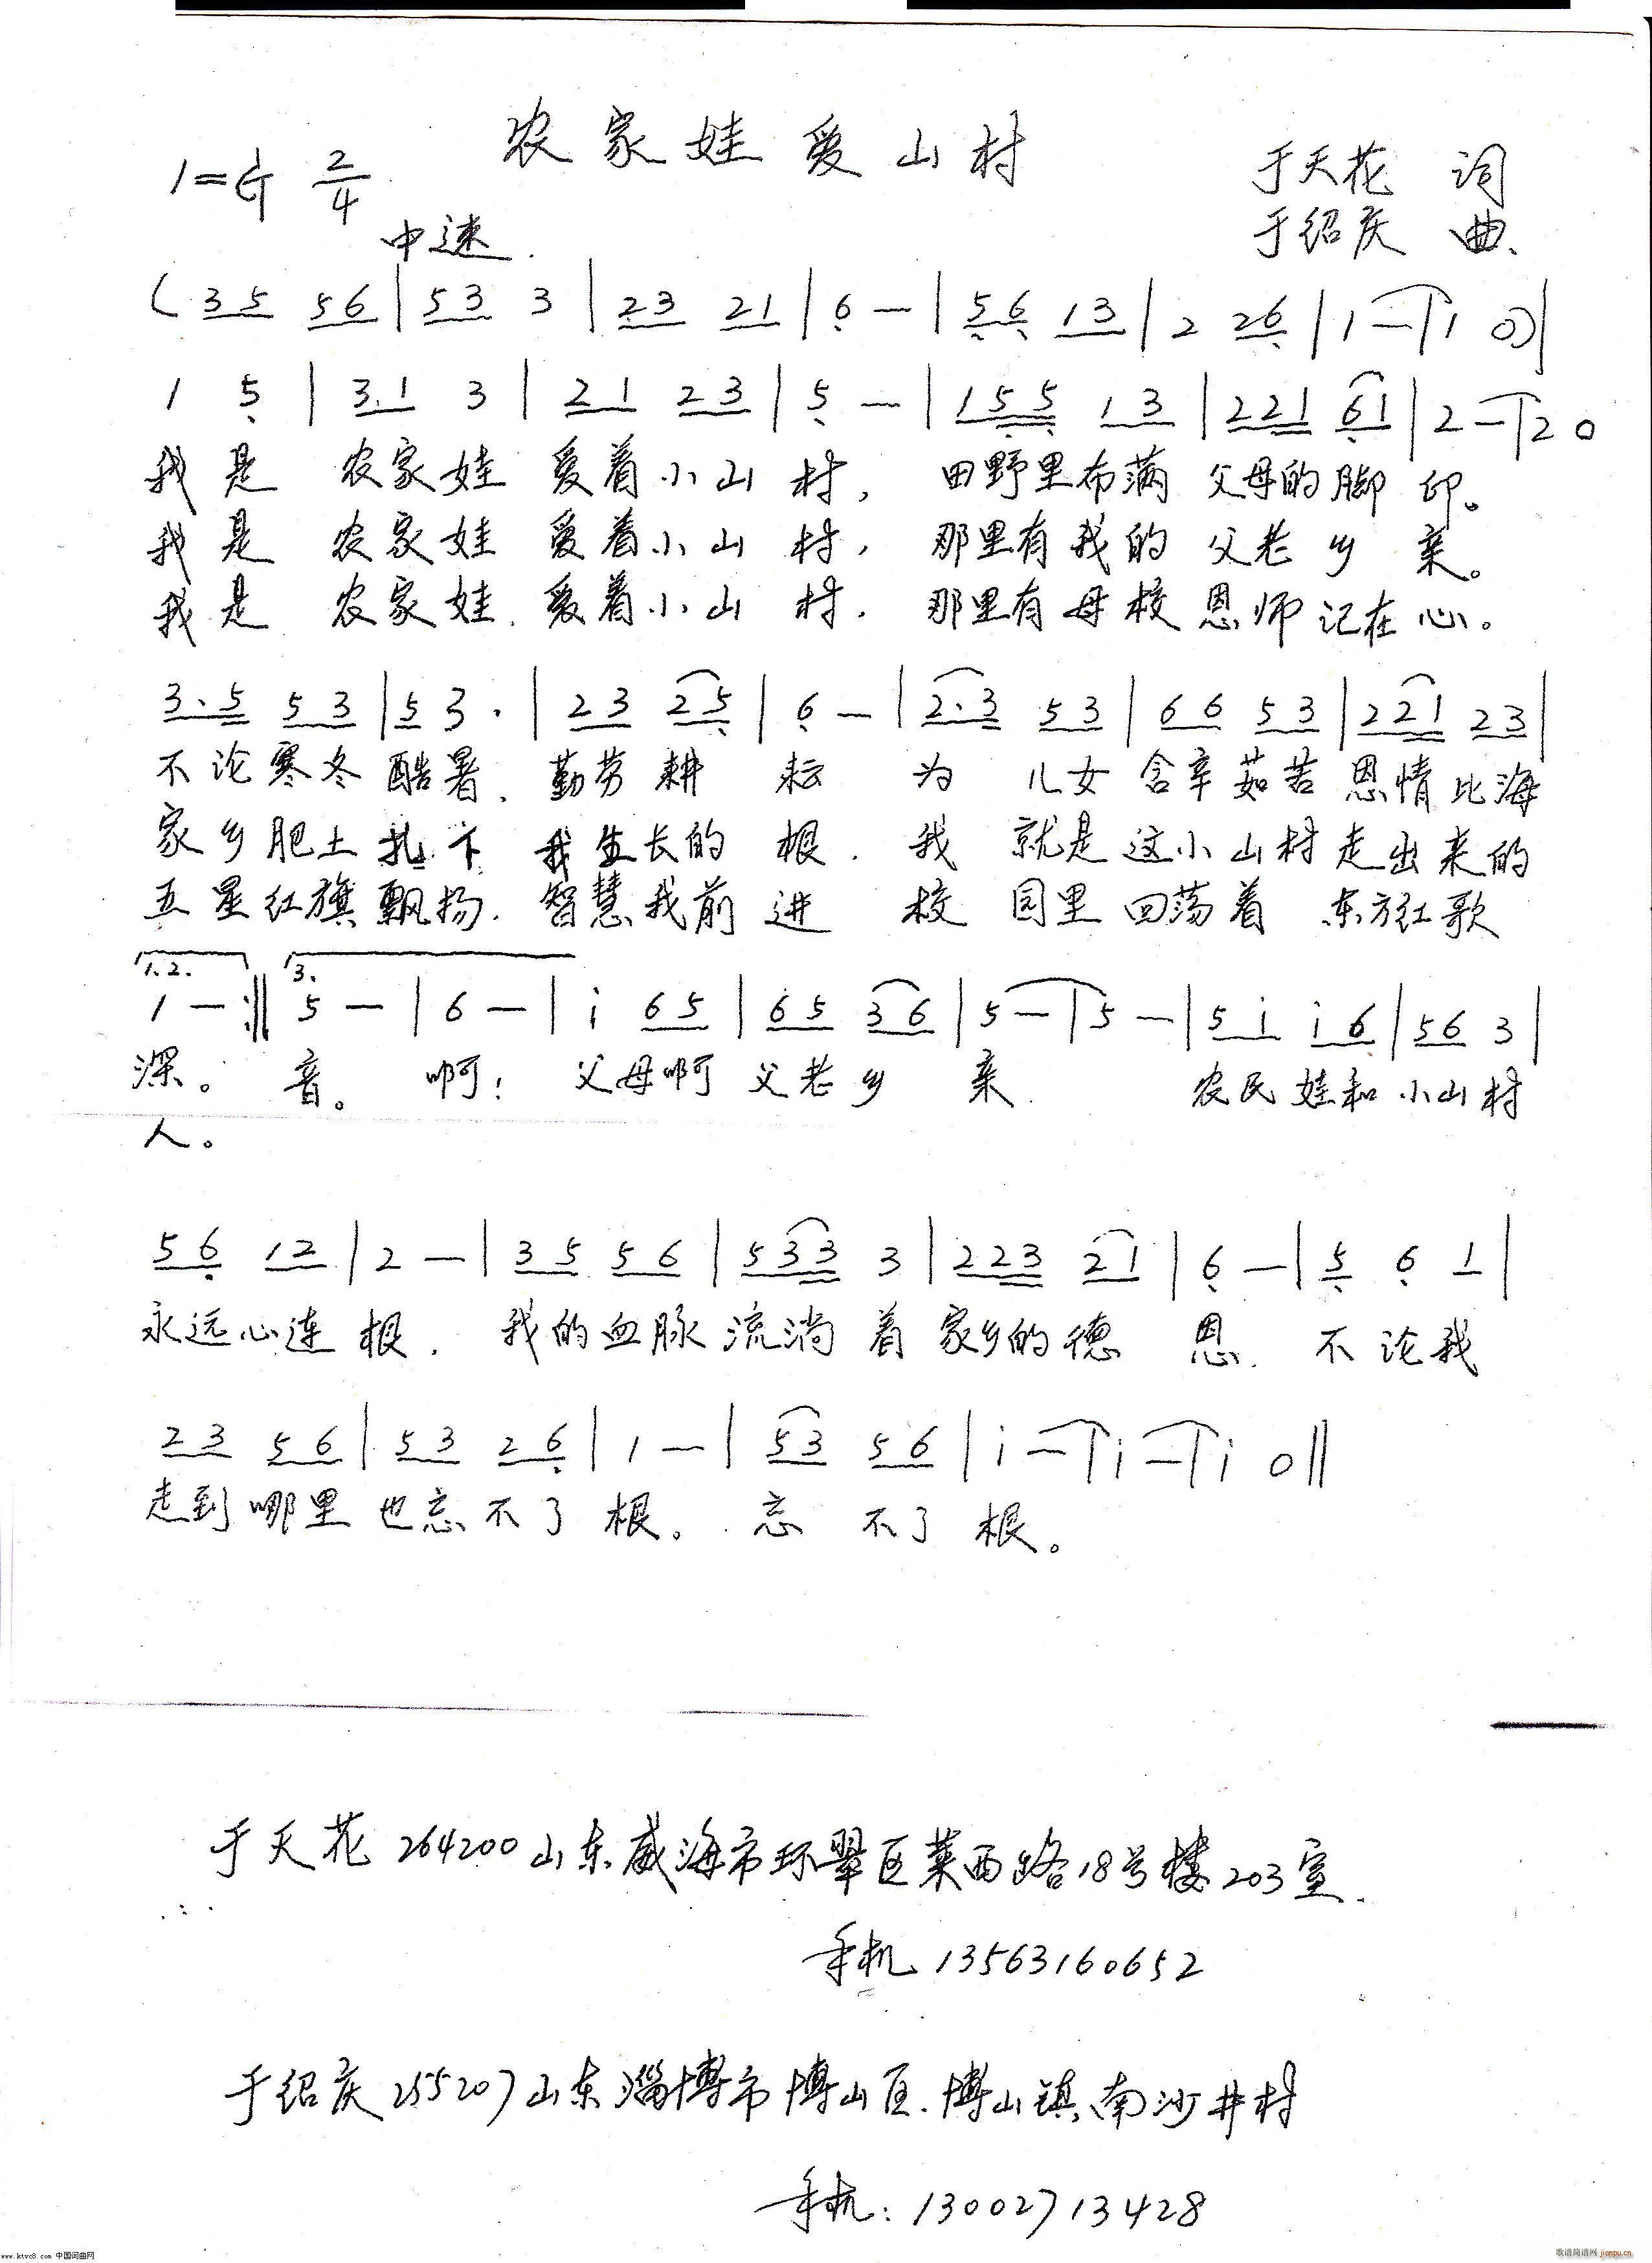 农家娃爱山村
1=G 2/4
于天花 词
中速.
于绍庆 曲、
( 35 56 | 53 3 | 23 21 | 6 — | 56 13 | 2 26 | 1 — | 1 0) |
1 5 | 3.1 3 | 21 23 | 5 — | 155 13 | 221 61 | 2 — | 2 0
我是 农家娃 爱着小山 村, 田野里布满 父母的脚 印。
我是 农家娃 爱着小山 村, 那里有我的 父老乡 亲。
我是 农家娃. 爱着小山 村. 那里有母校 恩师记在心。
3.5 53 | 5 3. | 23 25 | 6 — | 2.3 53 | 66 53 | 221 23 |
不论寒冬酷暑. 勤劳耕 耘 为 儿女含辛茹苦 恩情比海
家乡肥土扎下 我生长的 根. 我 就是这小山村走出来的
五星红旗飘扬. 智慧我前进 校 园里回荡着 东方红歌
1.2. 3.
1 — :‖ 5 — | 6 — | i 65 | 65 36 | 5 — | 5 — | 5i i6 | 56 3 |
深。 音。 啊! 父母啊父老乡 亲. 农民娃和小山村
人。
56 12 | 2 — | 35 56 | 533 3 | 223 21 | 6 — | 5 6 1 |
永远心连 根. 我的血脉流淌着 家乡的德 恩. 不论我
23 56 | 53 26 | 1 — | 53 56 | i — | i — | i 0 ‖
走到哪里也忘不了 根。 忘 不了 根。
于天花 264200 山东威海市环翠区莱西路18号楼203室.
手机 13563160652
于绍庆 255207 山东淄博市博山区.博山镇南沙井村
手机: 13002713428
www.ktvc8.com 中国词曲网
歌谱简谱网 jianpu.cn